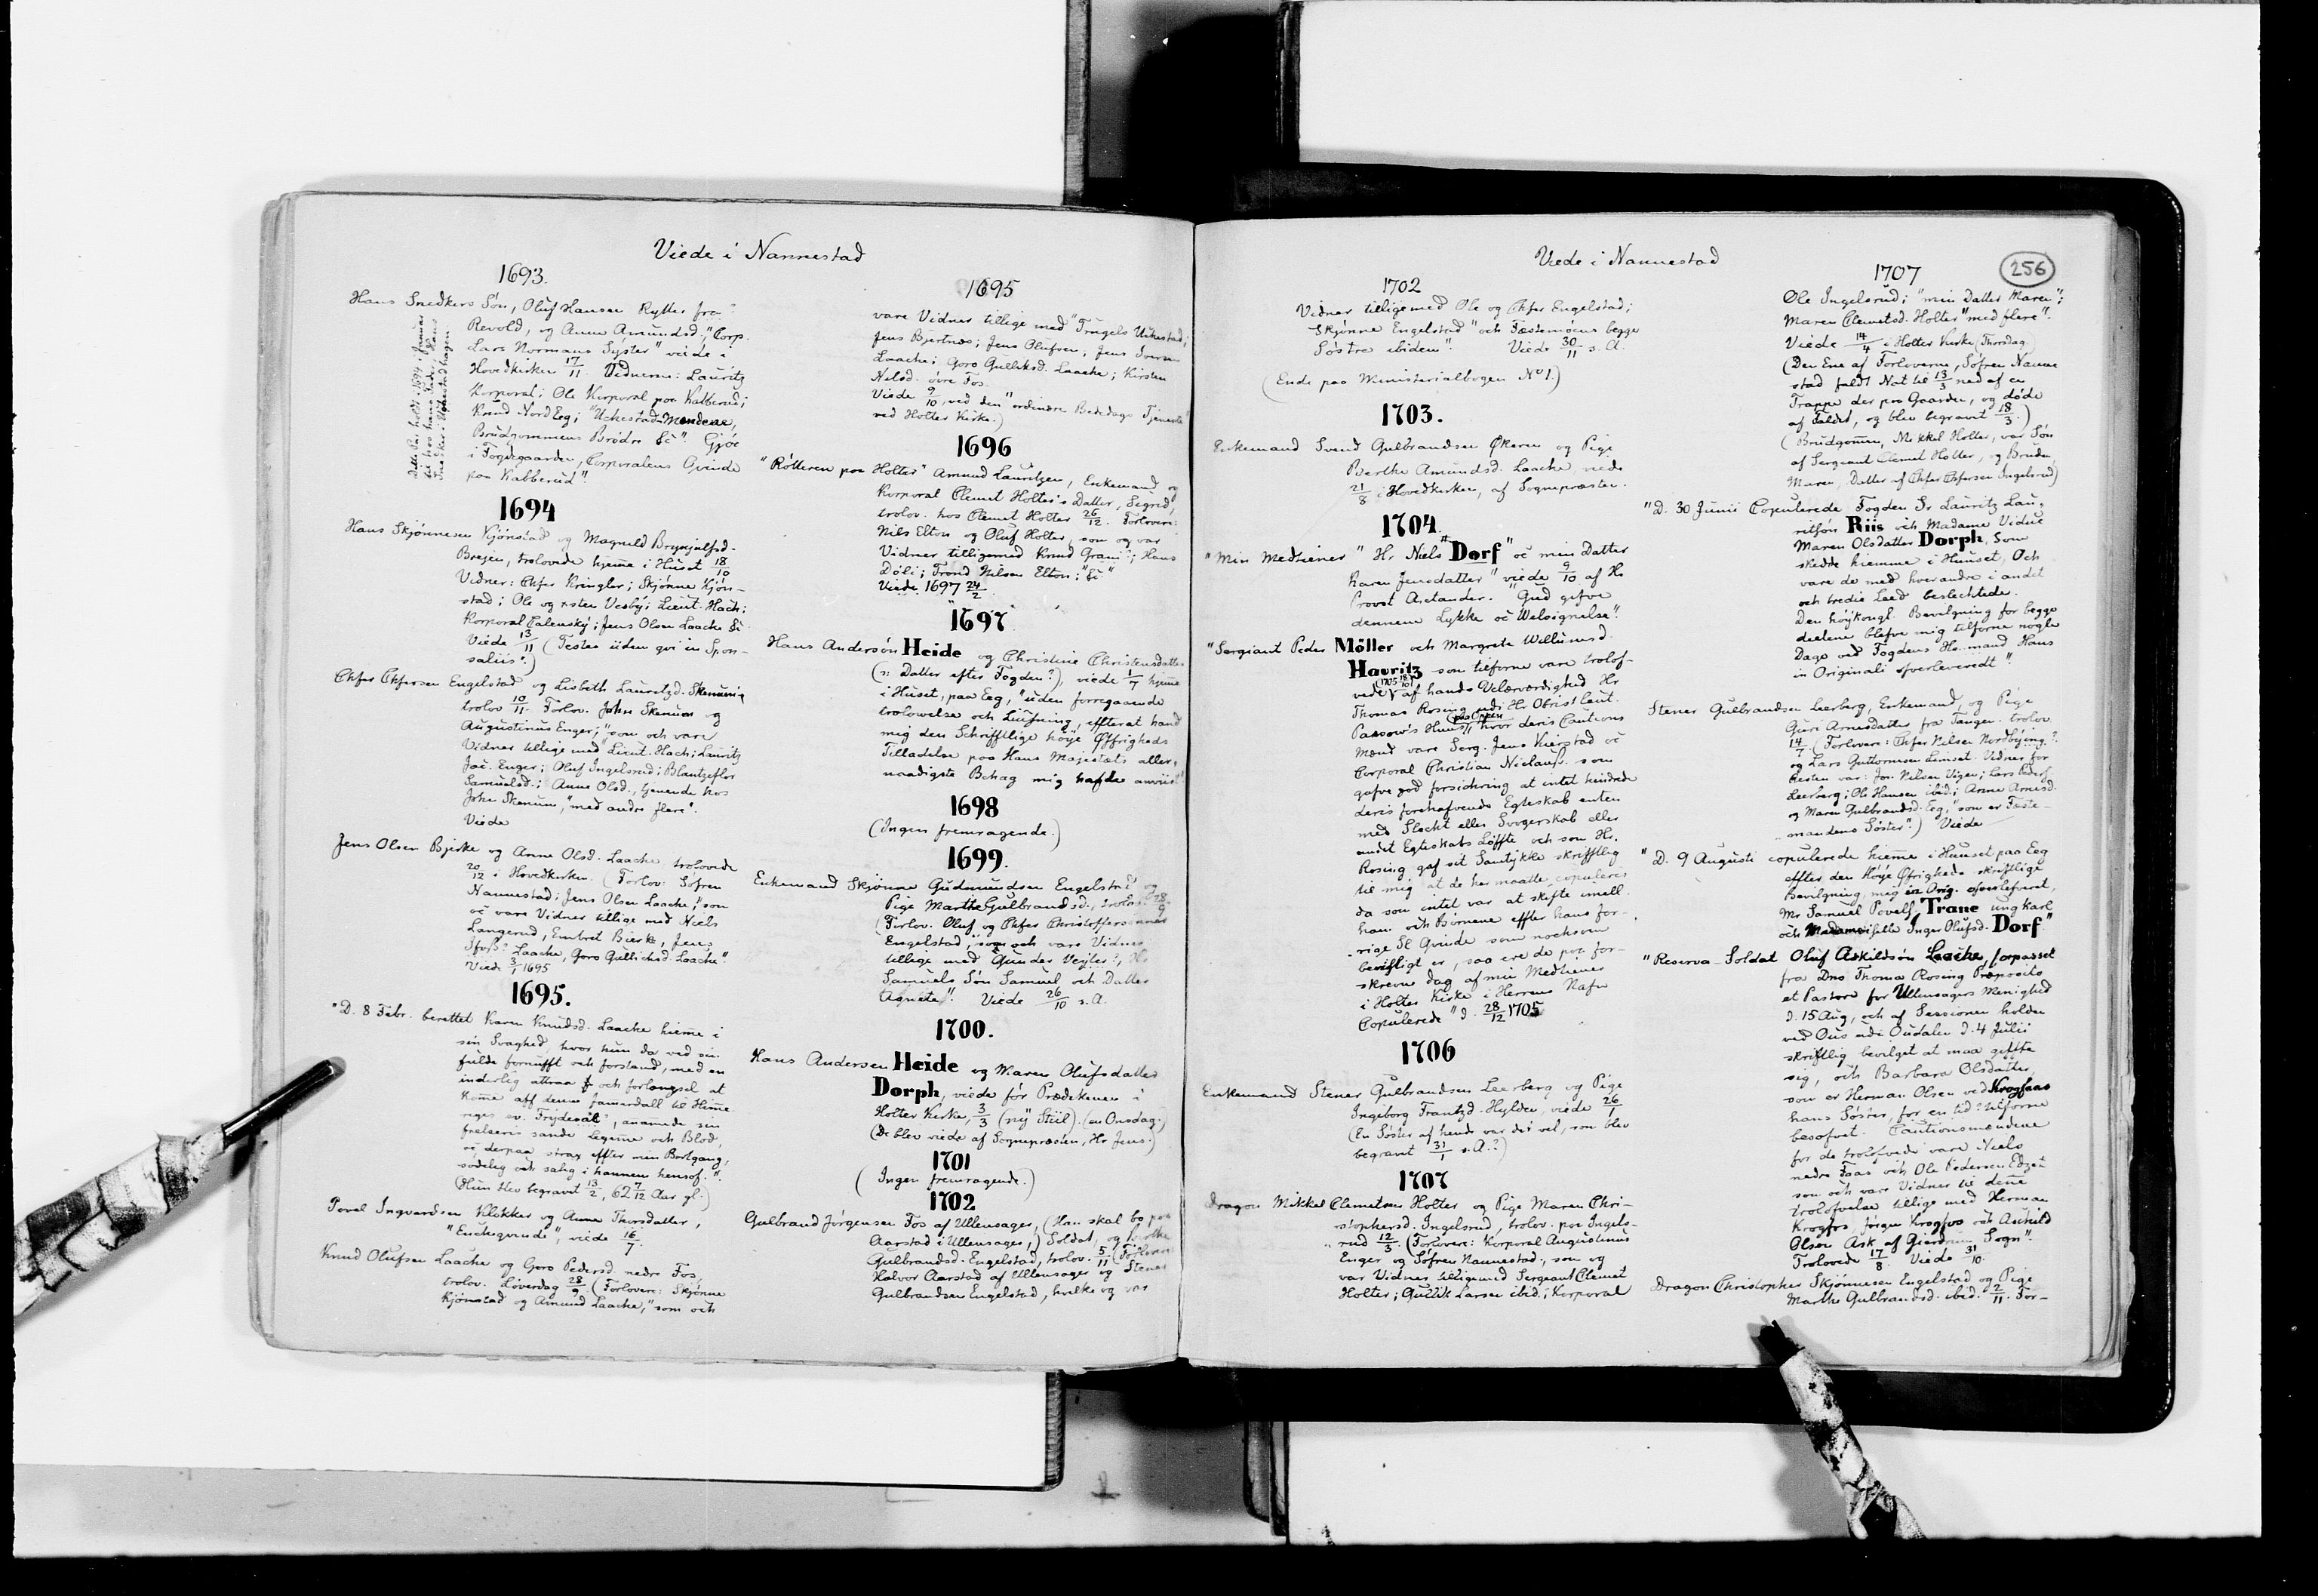 Viede i Nannestad
1693.
Hans Snedkers Søn, Oluf Hansen Rytter fra?
Revold, og Anne Amundsd., "Corp.
Lars Normans Syster" viede i
Hovedkirken 17/11. Vidnerne: Lauritz
Korporal; Ole Korporal paa Kabberud;
Knud Nord Eeg; "Ukustad-Mændene,
Brudgommens Brødre &c". Gjøe
i Fogdegaarden, Corporalens Qvinde
paa Kabberud".
1694
Hans Skjønnesen Kjønstad og Magnild Brynjulfsd.
Breien, trolovede hjeme i Huset 18/10
Vidner: Chfer Kringler; Skjønne Kjøn-
stad; Ole og Østen Vesby; Lieut. Hach;
Korporal Calensky; Jens Olsen Laache &c
Viede 13/11 (Testes iidem qvi in Spon-
saliis".)
Chfer Chfersen Engelstad og Lisbeth Lauritzd. Skenum
trolov 10/11. Forlov. John Skenum og
Augustinus Enger, "som och vare
Vidner tillige med Lieut. Hach; Lauritz
Jac. Enger; Oluf Ingelsrud; Blantzeflor
Samuelsd.; Anne Olsd., tjenende hos
John Skenum, "med andre flere".
Viede
Jens Olsen Bjerke og Anne Olsd. Laache trolovede
20/12 i Hovedkirken. (Forlov: Søfren
Nannestad; Jens Olsen Laache, "som
oc vare Vidner tillige med Niels
Langerud, Embret Bierke, Jens
Laache, Goro Gullichsd. Laache."
Viede 3/1 1695
1695.
"D. 8 Febr. berettet Karen Knudsd. Laache hieme i
sin Svaghed, hvor hun da ved sin
fulde fornufft och forstand, med en
inderlig attraa och forlængsel at
kome aff denne Jamerdall til Hime
riges ev. Frydesal, anamede sin
frelseris sande Legeme och Blod,
oc derpaa strax effter min Bortgang,
sødelig och salig i hannem hensof.".
(Hun blev begravet 13/2, 62 7/12 Aar gl.)
Poval Ingvardsen Klokker og Anne Thorsdatter,
"Enckeqvinde", viede 16/7.
Knud Olufsen Laache og Goro Pedersd. nedre Fos
trolov. Løverdag 28/9 (Forlovere: Skjønne
Kjønstad og Amund Laache, "som och
1695
vare Vidner tillige med "Trugels Ukustad;
Jens Bjertnes; Jens Olufsen; Jens Iversen
Laache; Goro Gulliksd. Laache; Kirsten
Nilsd. øvre Fos.
Viede 9/10, ved den "ordinære Bededags Tjeneste"
ved Holter Kirke.)
1696
"Rotteren paa Holter" Amund Lauritzen, Enkemand og
Korporal Clemet Holter's Datter, Segrid,
trolov. hos Clemet Holter 26/12. Forlovere:
Nils Elton og Oluf Holter, som og var
Vidner tilligemed Knud Gram; Hans
Døli; Trond Nilsen Elton; "&c"
Viede 1697 24/2
1697
Hans Andersøn Heide og Christine Christensdatter
(s: Datter efter Fogden?), viede 1/7 hjeme
i Huset, paa Eeg, "uden forregaaende
trolowelse och Liusning, effterat hand
mig den Schrifftlige høye Øffrigheds
Tilladelse paa Hans Majestæts aller-
naadigste Behag mig hafde anviist"
1698
(Ingen fremragende.)
1699.
Enkemand Skjønne Gudmundsen Engelstad og
Pige Marthe Gulbrandsd., trolov. 28/9
(Forlov. Oluf og Chfer Christoffersønner
Engelstad, "som och vare Vidner
tillige med Gunder Vejler?, Hr
Samuels Søn Samuel och Datter
Agnete". Viede 26/10 s.A.
1700.
Hans Andersen Heide og Maren Olufsdatter
Dorph, viede før Prædikenen i
Holter Kirke, 3/3 (ny Stiil). (en Onsdag.)
(De blev viede af Sognepræsten, Hr Jens.)
1701
(Ingen fremragende.)
1702
Gulbrand Jørgensen Fos af Ullensager, (Han skal bo paa
Aarstad i Ullensager,) Soldat, og Marthe
Gulbrandsd. Engelstad, trolov. 5/11 (Forlovere
Halvor Aarstad af Ullensager og Stener
Gulbrandsen Engelstad, hvilke og var
Viede i Nannestad
256
1702
Vidner tilligemed Ole og Chfer Engelstad;
Skjønne Engelstad "och Fæstemøens begge
Søstre ibidem". Viede 30/11 s.A.
(Ende paa Ministerialbogen No 1.)
1703.
Enkemand Svend Gulbrandsen Økeren og Pige
Berthe Amundsd. Laache, viede
21/8 i Hovedkirken, af Sognepræsten.
1704.
"Min Medtiener" Hr. Niels "Dorf" oc min Datter
Karen Jensdatter" viede 9/10 af Hr
Provst Arctander. "Gud gifve
dennem Lykke oc Welsignelse".
"Sergiant Peder Møller och Margrete Willumsd.
Havritz som tilforne vare trolof-
vede (1705 18/10) af hands Velærværdighed Hr
Thomas Rosing udi Hr. Obrist Leut.
Passow's Huus paa Oppen, hvor deris Cautions
mænd vare Serg. Jens Kierstad oc
Corporal Christian Nielsuß. som
gafve god forsickring at intet hindrede
deris forehafvende Egteskab enten
med Slæckt eller Svogerskab eller
andet Egteskabs Løffte och som Hr.
Rosing gaf sit Samtykke skrifftlig
til mig at de her maatte copuleres
da som intet var at skifte imell.
ham och Børnene effter hans for-
rige Sl Qvinde som nocksom
bevisligt er, saa ere de paa for-
skrevne dag af min Medtiener
i Holter Kirke i Herrens Nafn
Copulerede" d. 28/12 1705
1706
Enkemand Stener Gulbrandsen Leerberg og Pige
Ingeborg Frantzd. Hylden, viede 26/1
(En Søster af hende var det vel, som blev
begravet 31/1 s.A.?)
1707
Dragon Mikkel Clemetsen Holter og Pige Maren Chri-
stophersd. Ingelsrud, trolov. paa Ingels-
rud 12/3. (Forlovere: Korporal Augustinus
Enger og Søfren Nannestad, som og
var Vidner tilligemed Sergeant Clemet
Holter; Gullik Larsen ibid.; Korporal
1707
Ole Ingelsrud; "min Datter Maren";
Maren Clemetsd. Holter "med flere".
Viede 14/4 i Holter Kirke (Thorsdag)
(Den Ene af Forloverne, Søfren Nanne
stad faldt Nat til 13/3 ned af en
Trappe der paa Gaarden, og døde
af Faldet, og blev begravet 18/3.)
(Brudgommen, Mikkel Holter, var Søn
af Sergeant Clemet Holter, og Bruden,
Maren, Datter af Chfer Chfersen Ingelsrud)
"D. 30 Junii Copulerede Fogden Sr Lauritz Lau-
ritsøn Riis och Madame Vidue
Maren Olsdatter Dorph, som
skedte hiemme i Huuset, Och
vare de med hverandre i andet
och tredie Leed beslechtede.
Den høykongl. Bevilgning for begge
deelene blefve mig tilforne nogle
Dage ved Fogdens Hr. mand Hans
in Originali ofverleveredt".
Stener Gulbrandsen Leerberg, Enkemand, og Pige
Guri Arnesdatter fra Tangen. trolov.
14/7. (Forlovere: Chfer Nilsen Nordbyeing?
og Lars Guttormsen Limset. Vidner for
Resten var: Jon Nilsen Vigen; Lars Peders
Leerberg; Ole Hansen ibid.; Anne Arnesd.
og Maren Gulbrandsd. Eeg, "som er Fæste-
mandens Søster".) Viede
"D. 9 Augusti copulerede hieme i Huuset paa Eeg
effter den Høye Øfrigheds skriftlige
Bevilgning, mig in Orig. ofverlefveret,
Mr Samuel Povelß. Trane ung karl
och Madamoiselle Inger Olufsd. Dorf."
"Reserva-Soldat Oluf Askildsøn Laache, forpasset
fra Dno Thoma Rosing Præposito
et Pastore for Ullensagers Menighed
d. 15 Aug, och af Sessionen holden
ved Ous udi Oudalen d. 4 Julii
skriftlig bevilget at maa giffte
sig, och Barbara Olsdatter,
som er Herman Olsen ved Krogfoss
hans Søster, for en tid? tilforne
besofvet. Cautionsmændene
for de trolofvede vare Niels
nedre Faas och Ole Pedersen
som och vare Vidner til dene
trolofvelse tillige med Herman
Krogfos, Jørgen Krogfos och Aschild
Olsen Ask af Gierdrum Sogn".
Trolovede 17/8. Viede 31/10.
Dragon Christopher Skjønnesen Engelstad og Pige
Marthe Gulbrandsd. ibid. 2/11. For-